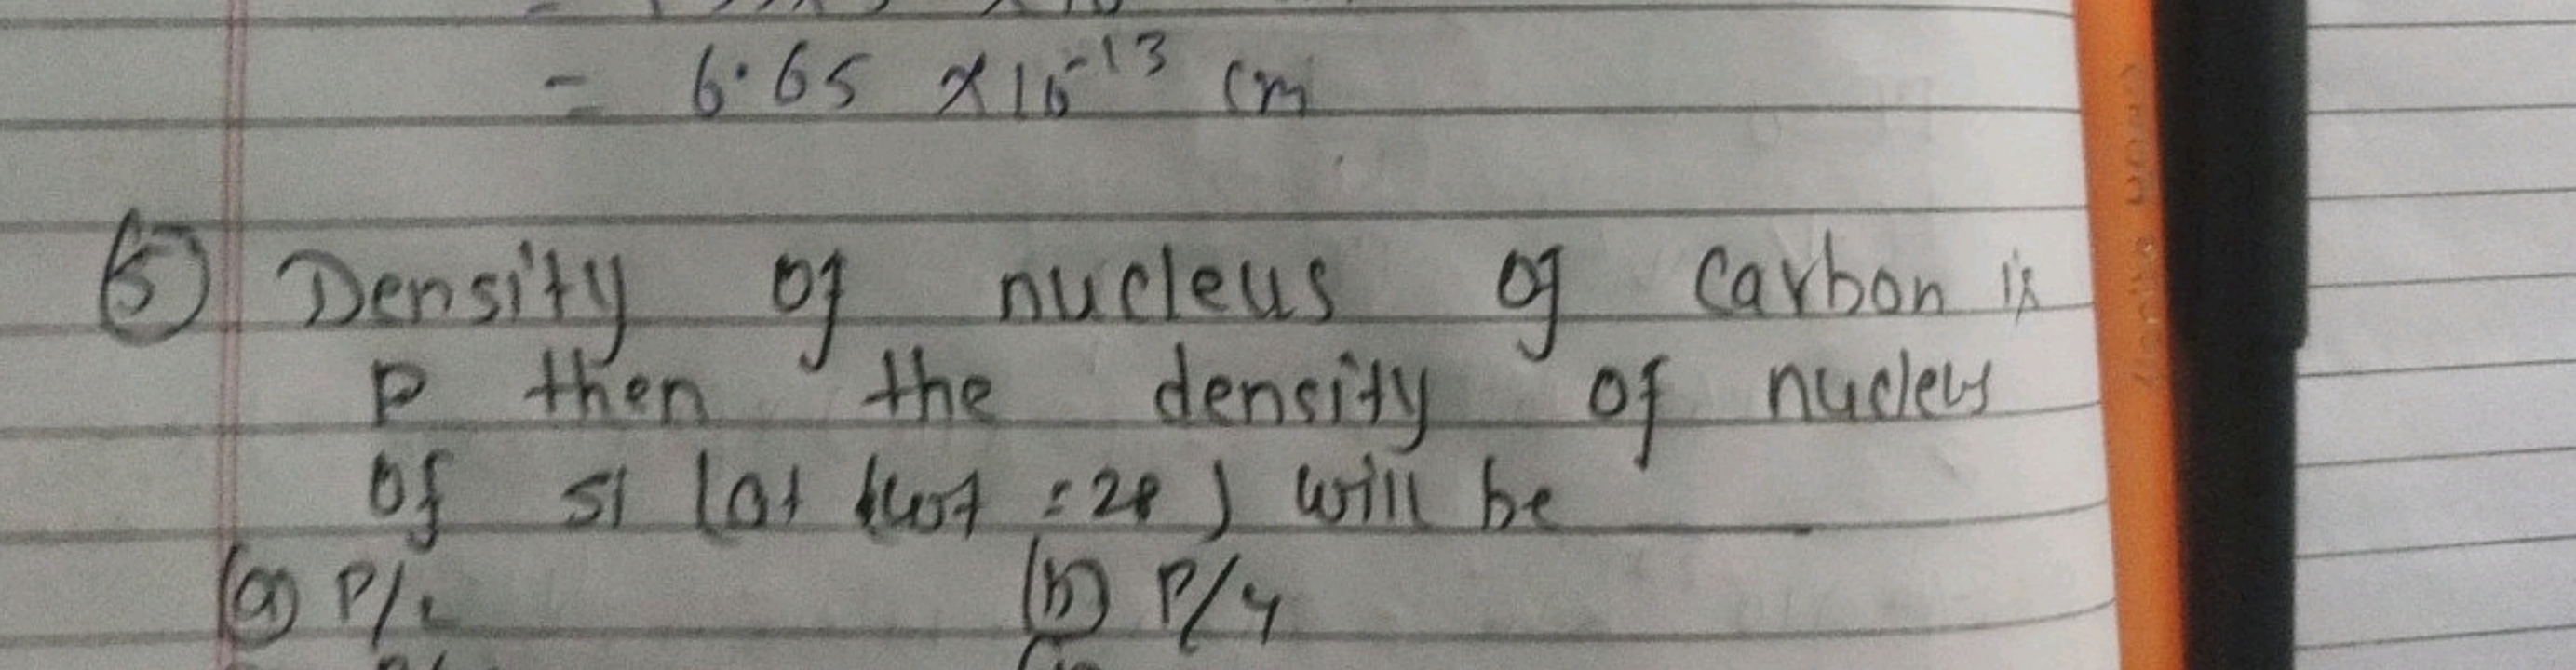 = 6.65 x10-13 cm
5 Density of nucleus of carbon is
P then the density of nucleus
of Si (at wt = 28) will be ____
(a) P/2 (b) P/4